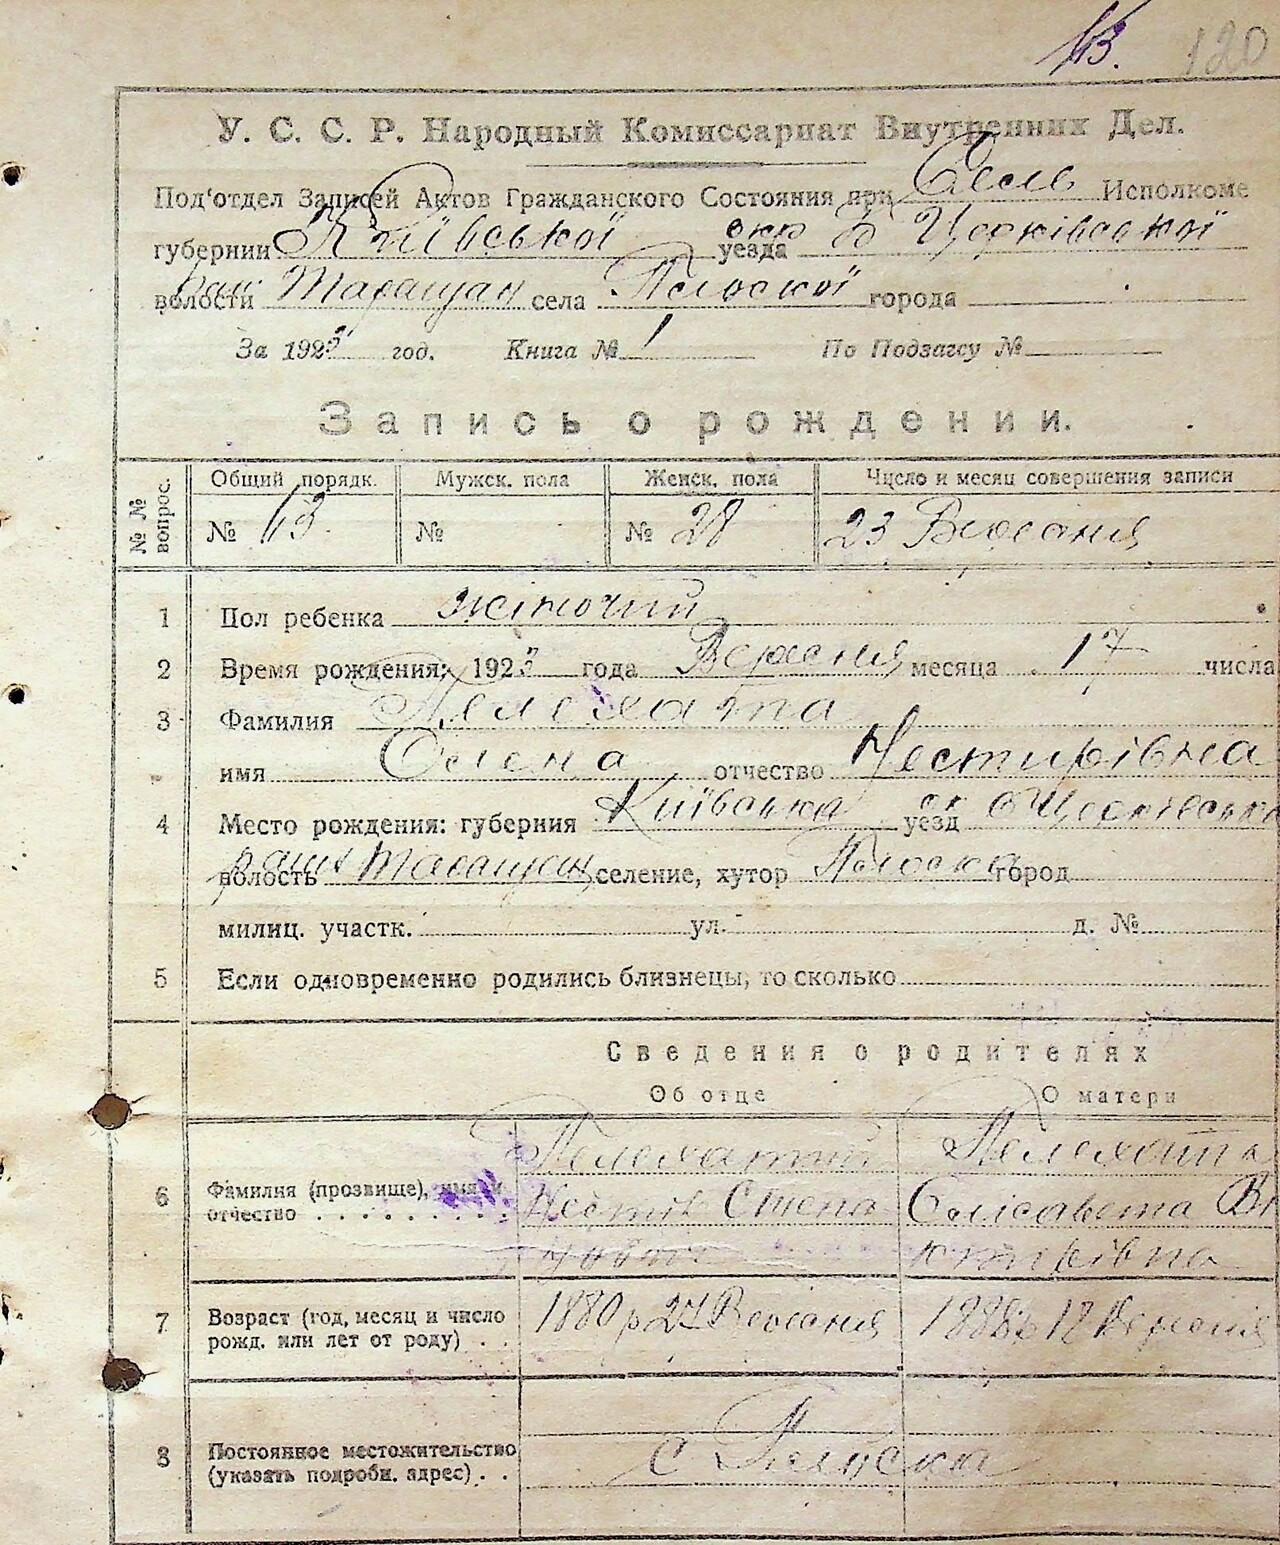 63. 120
У. С. С. Р. Народный Комиссариат Внутренних Дел.
Под‘отдел Записей Актов Гражданского Состояния при Сель Исполкоме
губернии Київської уезда окр Б Церківської
волости рай Таращан села Плоскої города
За 1925 год. Книга № 1 По Подзагсу №
Запись о рождении.
№ № вопрос. Общий порядк. Мужск. пола Женск. пола Число и месяц совершения записи
№ 63 № № 28 23 Вересня
1 Пол ребенка жіночий
2 Время рождения: 1925 года Вересня месяца 17 числа
3 Фамилия Пелехата
имя Олена отчество Нестирівна
4 Место рождения: губерния Київська уезд ок Б Церківська
волость район Таращан селение, хутор Плоска город
милиц. участк. ул. д. №
5 Если одновременно родились близнецы, то сколько
Сведения о родителях
Об отце О матери
Пелехатий Пелехата
6 Фамилия (прозвище), имя и отчество Нестір Степа Єлісавета Ві
нович кторівна
7 Возраст (год, месяц и число рожд. или лет от роду) 1880 р 27 Вересня 1888 р 12 Вересня
8 Постоянное местожительство (указать подробн. адрес) с Плоска